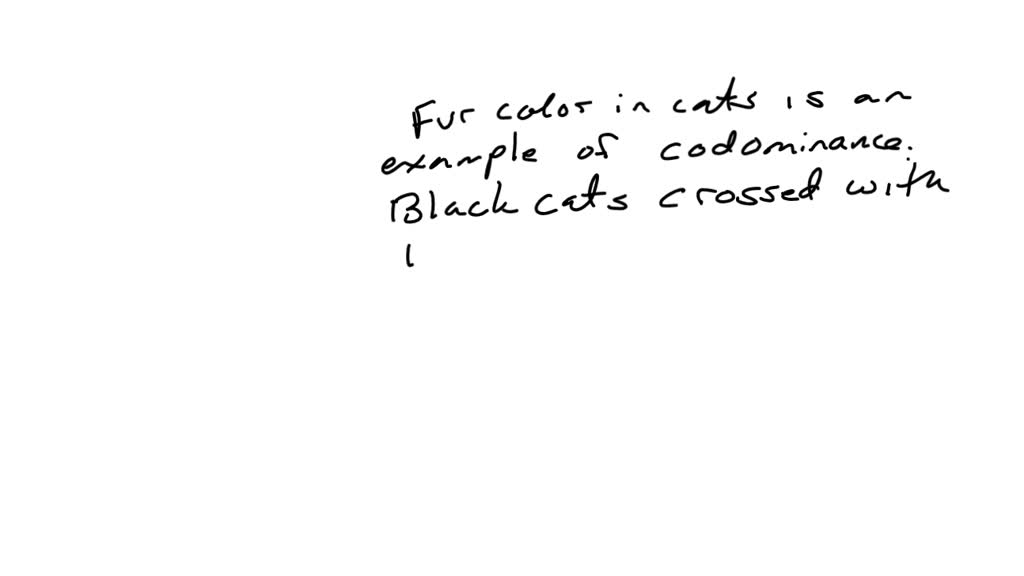 Fur color in cats is an
example of codominance.
Black cats crossed with